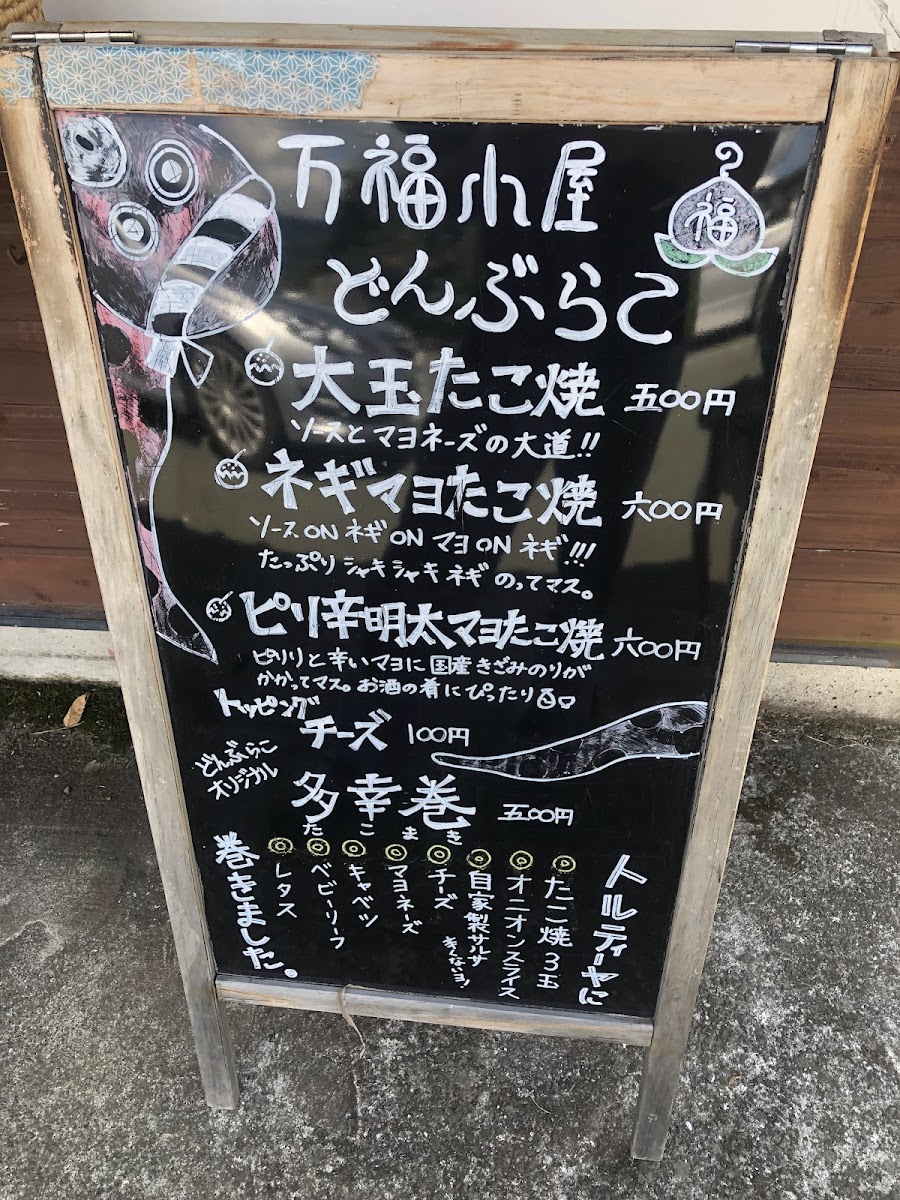 万福小屋
福
どんぶらこ
大玉たこ焼 五〇〇円
ソースとマヨネーズの大道!!
ネギマヨたこ焼 六〇〇円
ソースON ネギON マヨON ネギ!!!
たっぷりシャキシャキネギのってマス。
ピリ辛明太マヨたこ焼 六〇〇円
ピリリと辛いマヨに国産きざみのりが
かかってマス。お酒の肴にぴったり
トッピング
チーズ 100円
どんぶらこ
オリジナル
多幸巻 五〇〇円
たこまき
トルティーヤに
たこ焼3玉
オニオンスライス
自家製サルサ
辛くないヨ!
チーズ
マヨネーズ
キャベツ
ベビーリーフ
レタス
巻きました。